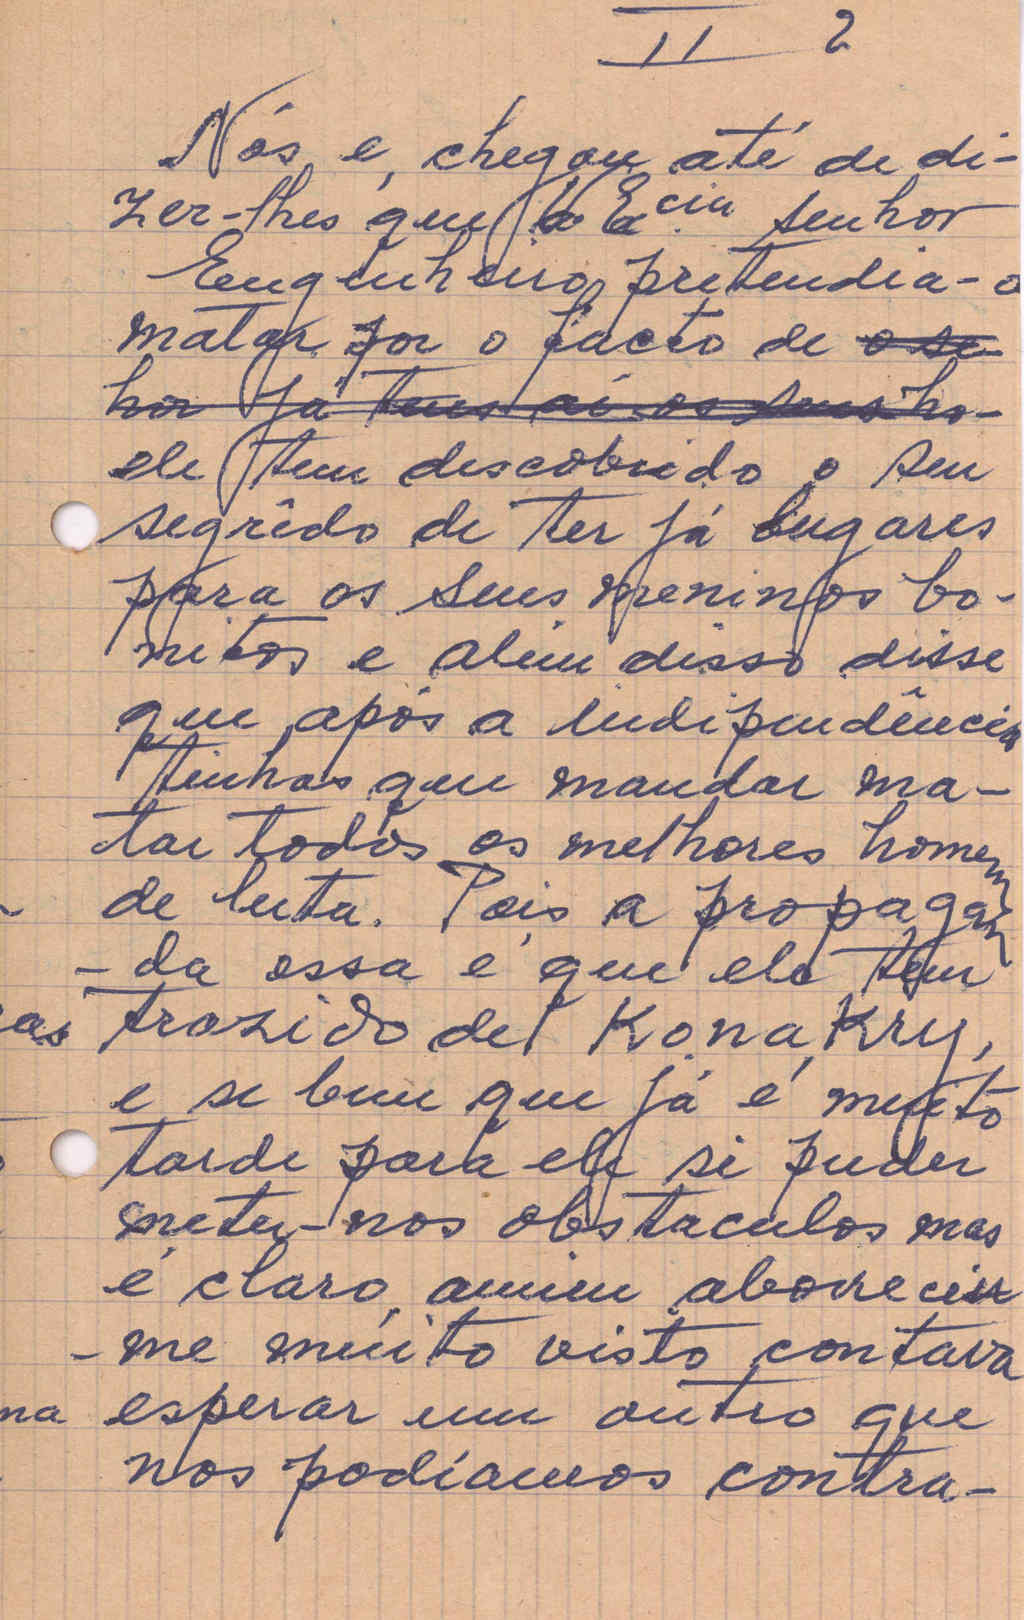 II 2
Nós, e, chegou até de di-
zer-lhes que V. Ex.cia senhor
Eugenheiro, pretendia-o
matar por o facto de o se-
hor já tens aí os seus ho-
ele tem descobrido o seu
segrêdo de ter já lugares
para os seus meninos bo-
nitos e alêm disso disse
que após a indipendência
tinhas que mandar ma-
tar todos os melhores homens
de luta. Pois a propagan
-da essa é que ele tem
trazido de Konakry,
e se bem que já é muito
tarde para ele si puder
meter-nos obstaculos mas
é claro, amim aborrecin
-me muito visto contava
esperar um outro que
nos podíamos contra-